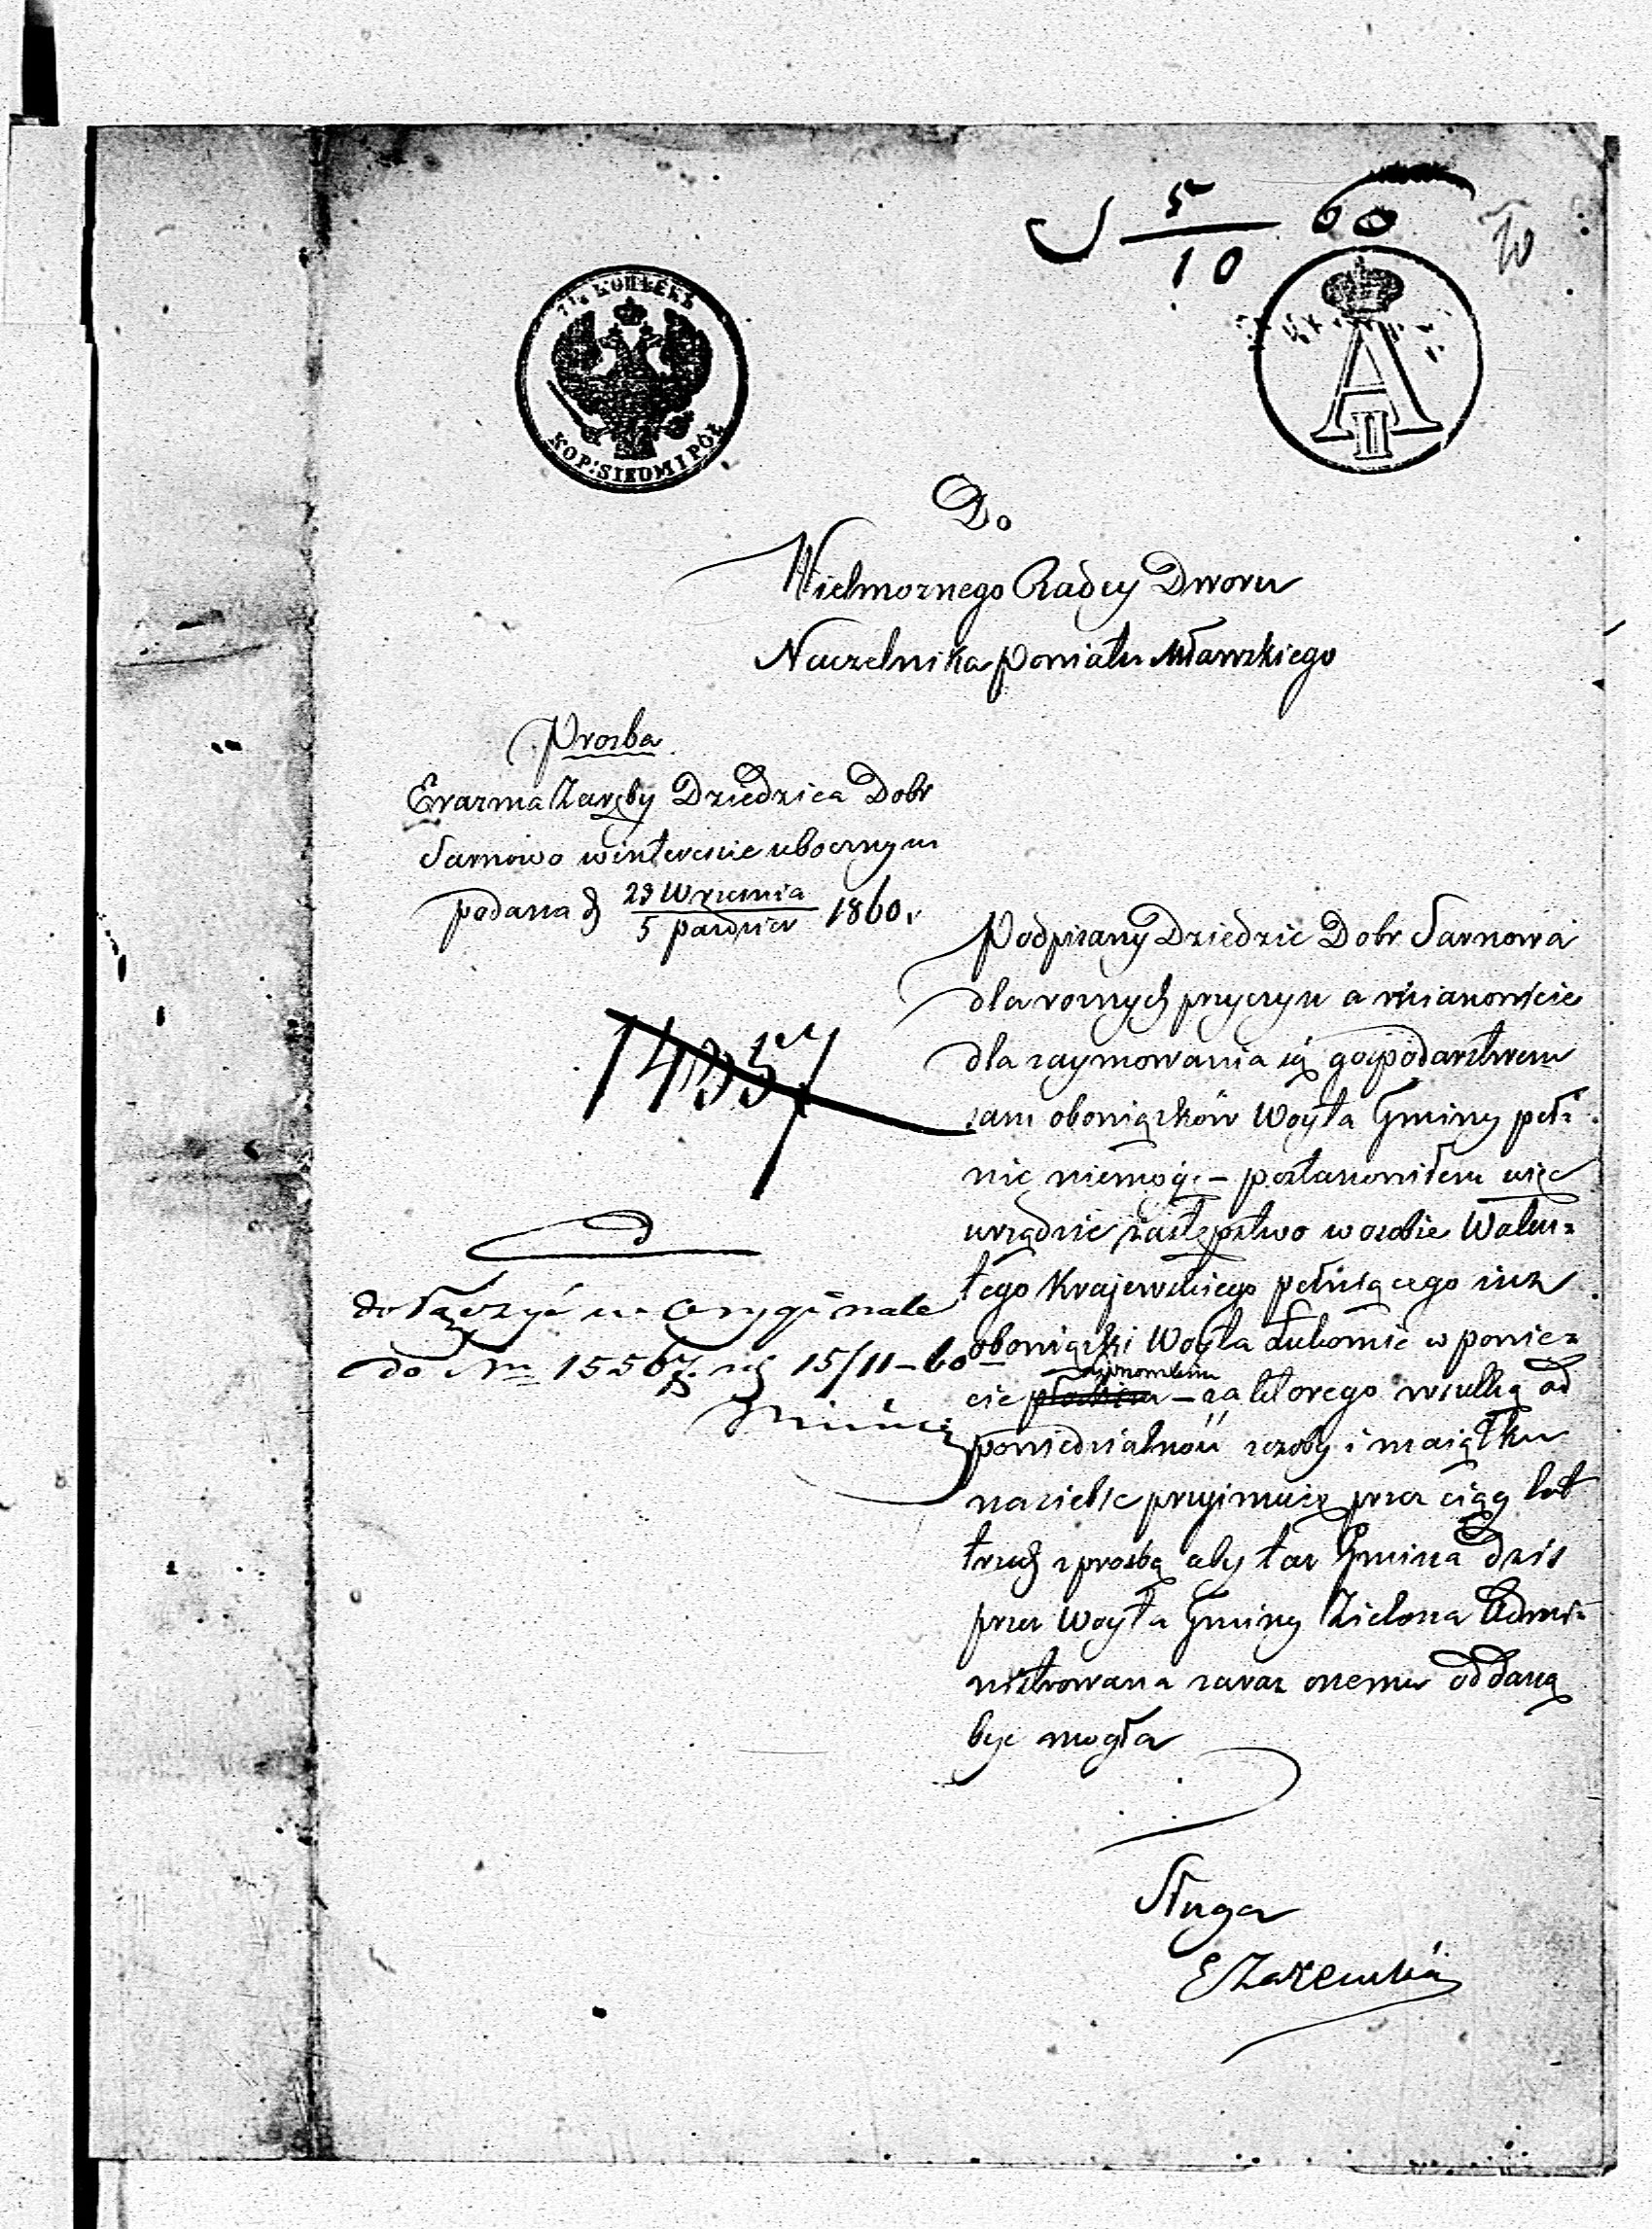 5/10 60
7½ КОПѢЕКЪ
KOP: SIEDM I PÓŁ
A II
Do
Wielmoznego Radcy Dworu
Naczelnika Powiatu Mławskiego
Prozba
Erazma Zaręby Dziedzica Dobr
Sarnowo w interesie ubocznym
podana d 23 Wrzesnia / 5 Pazdzier 1860.
14957
Podpisany Dziedzic Dobr Sarnowa
dla roznych przyczyn a mianowicie
dla zaymowania się gospodarstwem
sam obowiązków Woyta Gminy peł:
nic niemogę – postanowiłem więc
urządzic zastępstwo w osobie Walen=
tego Krajewskiego pełniącego iuz
obowiązki Woyta Lutomic w powie=
cie – za ktorego wszelką od
powiedzialność z osoby i maiątku
na siebie przyimuię przez ciąg lat
trzech z prozbą aby taz Gmina dzis
przez Woyta Gminy Zielona Admi=
nistrowana zaraz onemu oddaną
byc mogła
dołączyć w oryginale
do Nr 15567. 15/11–60
Sługa
E Zaremba